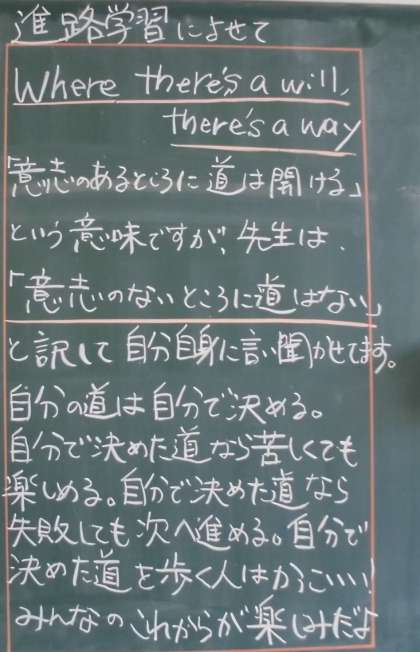 進路学習によせて
Where there's a will,
there's a way
「意志のあるところに道は開ける」
という意味ですが、先生は、
「意志のないところに道はない」
と訳して自分自身に言い聞かせてます。
自分の道は自分で決める。
自分で決めた道なら苦しくても
楽しめる。自分で決めた道なら
失敗しても次へ進める。自分で
決めた道を歩く人はかっこいい!
みんなのこれからが楽しみだよ